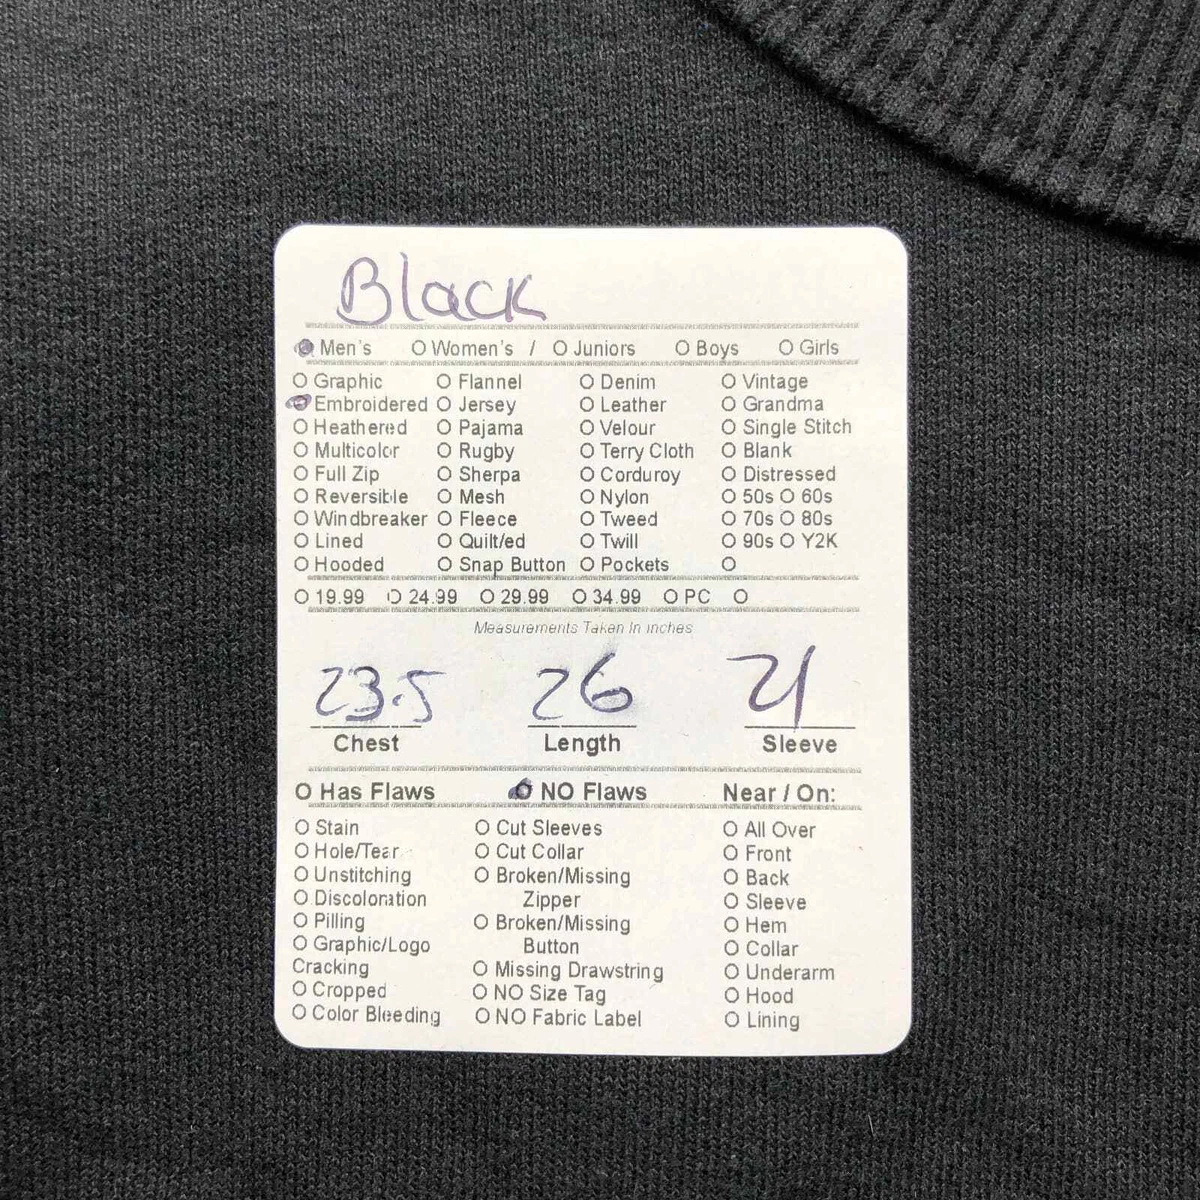 Black
Men's O Women's / O Juniors O Boys O Girls
O Graphic O Flannel O Denim O Vintage
Embroidered O Jersey O Leather O Grandma
O Heathered O Pajama O Velour O Single Stitch
O Multicolor O Rugby O Terry Cloth O Blank
O Full Zip O Sherpa O Corduroy O Distressed
O Reversible O Mesh O Nylon O 50s O 60s
O Windbreaker O Fleece O Tweed O 70s O 80s
O Lined O Quilt/ed O Twill O 90s O Y2K
O Hooded O Snap Button O Pockets O
O 19.99 O 24.99 O 29.99 O 34.99 O PC O
Measurements Taken In inches
23.5 26 21
Chest Length Sleeve
O Has Flaws O NO Flaws Near / On:
O Stain O Cut Sleeves O All Over
O Hole/Tear O Cut Collar O Front
O Unstitching O Broken/Missing O Back
O Discoloration Zipper O Sleeve
O Pilling O Broken/Missing O Hem
O Graphic/Logo Button O Collar
Cracking O Missing Drawstring O Underarm
O Cropped O NO Size Tag O Hood
O Color Bleeding O NO Fabric Label O Lining